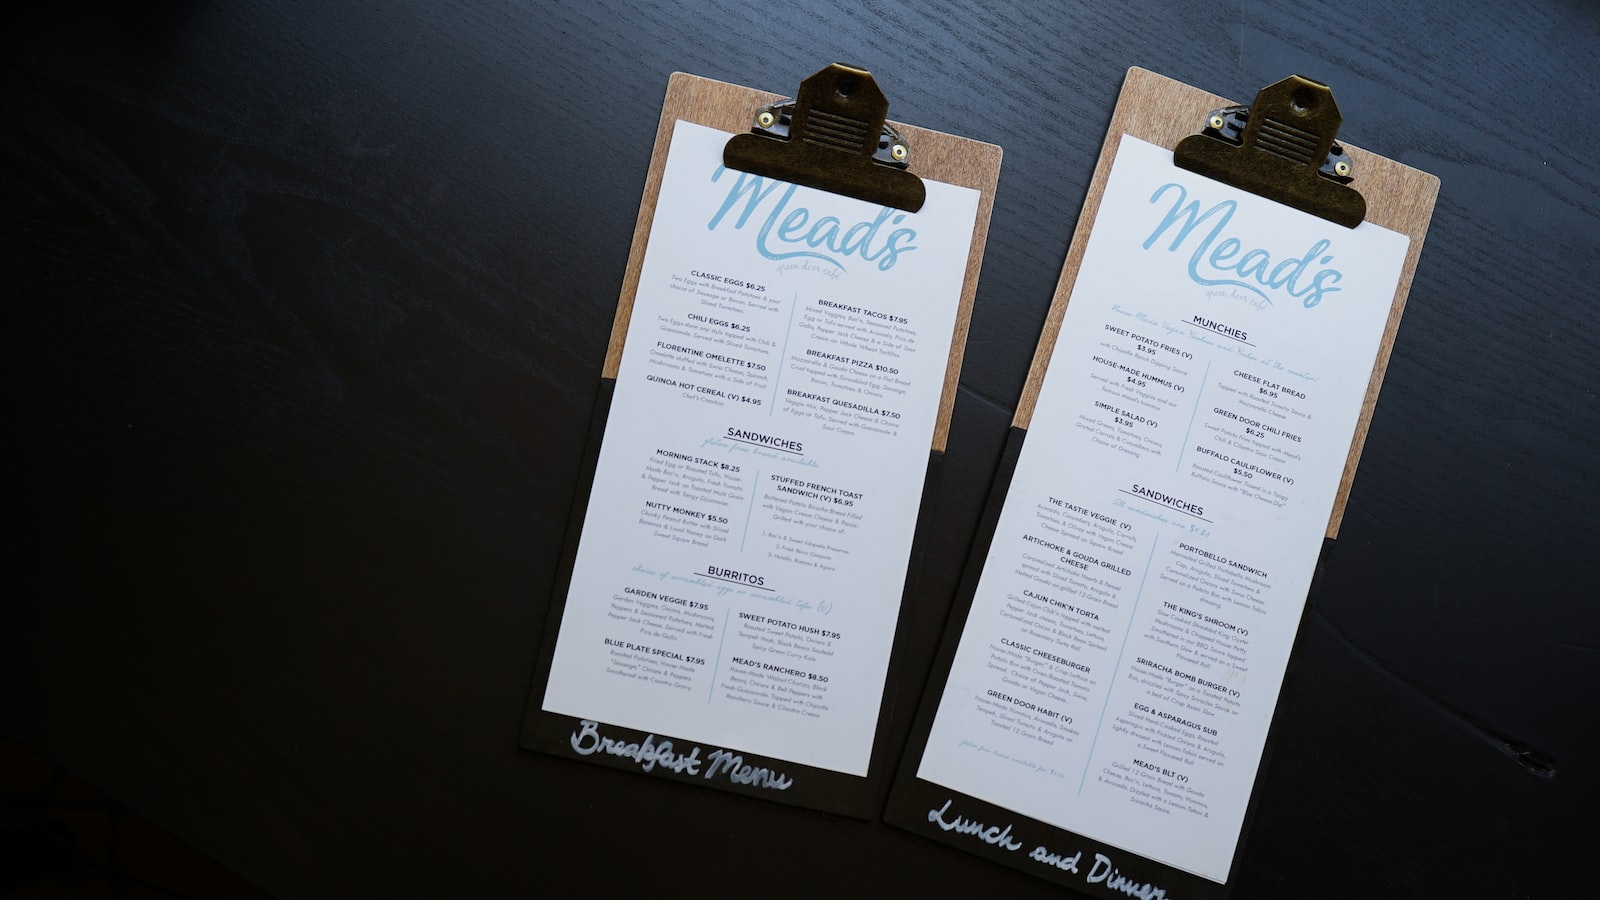 Mead's
green door café
CLASSIC EGGS $6.25
Two Eggs with Breakfast Potatoes & your
choice of Sausage or Bacon. Served with
Sliced Tomatoes.
CHILI EGGS $6.25
Two Eggs done any style topped with Chili &
Guacamole. Served with Sliced Tomatoes.
FLORENTINE OMELETTE $7.50
Omelette stuffed with Swiss Cheese, Spinach,
Mushrooms & Tomatoes with a Side of Fruit
QUINOA HOT CEREAL (V) $4.95
Chef's Creation
BREAKFAST TACOS $7.95
Mixed Veggies, Bac'n, Seasoned Potatoes,
Egg or Tofu served with Avocado, Pico de
Gallo, Pepper Jack Cheese & a Side of Sour
Cream on Whole Wheat Tortillas.
BREAKFAST PIZZA $10.50
Mozzarella & Gouda Cheese on a Flat Bread
Crust topped with Scrambled Egg, Sausage,
Bacon, Tomatoes & Onions.
BREAKFAST QUESADILLA $7.50
Veggie Mix, Pepper Jack Cheese & Choice
of Eggs or Tofu. Served with Guacamole &
Sour Cream
SANDWICHES
gluten free bread available
MORNING STACK $8.25
Fried Egg or Roasted Tofu, House-
Made Bac'n, Arugula, Fresh Tomato
& Pepper Jack on Toasted Multi Grain
Bread with Tangy Dijonnaise.
NUTTY MONKEY $5.50
Chunky Peanut Butter with Sliced
Bananas & Local Honey on Dark
Sweet Square Bread
STUFFED FRENCH TOAST
SANDWICH (V) $6.95
Battered Potato Brioche Bread Filled
with Vegan Cream Cheese & Panini-
Grilled with your choice of
1. Bac'n & Sweet Jalapeño Preserves
2. Fresh Berry Compote
3. Nutella, Banana & Agave
BURRITOS
choice of scrambled eggs or scrambled tofu (v)
GARDEN VEGGIE $7.95
Garden Veggies, Onions, Mushrooms,
Peppers & Seasoned Potatoes, Melted
Pepper Jack Cheese. Served with Fresh
Pico de Gallo
BLUE PLATE SPECIAL $7.95
Roasted Potatoes, House-Made
"Sausage," Onions & Peppers
Smothered with Country Gravy
SWEET POTATO HUSH $7.95
Roasted Sweet Potato, Onions &
Tempeh Hash, Black Beans Sautéed
Spicy Green Curry Kale
MEAD'S RANCHERO $8.50
House-Made Walnut Chorizo, Black
Beans, Onions & Bell Peppers with
Fresh Guacamole, Topped with Chipotle
Ranchero Sauce & Cilantro Cream
Breakfast Menu
Mead's
green door café
MUNCHIES
House-Made Vegan Cookies and Cakes at the counter!
SWEET POTATO FRIES (V)
$3.95
with Chipotle Ranch Dipping Sauce
HOUSE-MADE HUMMUS (V)
$4.95
Served with Fresh Veggies and our
famous Mead's hummus
SIMPLE SALAD (V)
$3.95
Mixed Greens, Tomatoes, Onions,
Grated Carrots & Cucumbers with
Choice of Dressing
CHEESE FLAT BREAD
$6.95
Topped with Roasted Tomato Sauce &
Mozzarella Cheese
GREEN DOOR CHILI FRIES
$6.25
Sweet Potato Fries topped with Mead's
Chili & Cilantro Sour Cream
BUFFALO CAULIFLOWER (V)
$5.50
Roasted Cauliflower Tossed in a Tangy
Buffalo Sauce with "Blue Cheese Dip"
SANDWICHES
All sandwiches are
THE TASTIE VEGGIE (V)
Avocado, Cucumbers, Arugula, Carrots,
Tomatoes & Olives with Vegan Cream
Cheese Spread on Square Bread
ARTICHOKE & GOUDA GRILLED
CHEESE
Caramelized Artichoke Hearts & Fennel
spread with Sliced Tomato, Arugula &
Melted Gouda on grilled 12 Grain Bread
CAJUN CHIK'N TORTA
Grilled Cajun Chik'n topped with melted
Pepper Jack cheese, Tomatoes, Lettuce,
Caramelized Onions & Black Bean Spread
on Rosemary Torta Roll
CLASSIC CHEESEBURGER
House-Made "Burger" & Crisp Lettuce on
Potato Bun with Oven-Roasted Tomato
Spread. Choice of Pepper Jack, Swiss,
Gouda or Vegan Cheese.
GREEN DOOR HABIT (V)
House-Made Hummus, Avocado, Smokey
Tempeh, Sliced Tomato & Arugula on
Toasted 12 Grain Bread
gluten free bread available for
PORTOBELLO SANDWICH
Marinated Grilled Portobello Mushroom
Cap, Arugula, Sliced Tomatoes &
Caramelized Onions with Swiss Cheese.
Served on a Potato Bun with Lemon-Tahini
dressing
THE KING'S SHROOM (V)
Slow Cooked Shredded King Oyster
Mushrooms & Chopped House Patty
Smothered in our BBQ Sauce topped
with Southern Slaw & served on a Sweet
Flaxseed Roll
SRIRACHA BOMB BURGER (V)
House-Made "Burger" on a Toasted Potato
Bun, drizzled with Spicy Sriracha Sauce on
a bed of Crisp Asian Slaw
EGG & ASPARAGUS SUB
Sliced Hard-Cooked Eggs, Roasted
Asparagus with Pickled Onions & Arugula,
lightly dressed with Lemon-Tahini served on
a Sweet Flaxseed Roll
MEAD'S BLT (V)
Grilled 12 Grain Bread with Gouda
Cheese, Bac'n, Lettuce, Tomato, Hummus,
& Avocado. Drizzled with a Lemon-Tahini &
Sriracha Sauce.
Lunch and Dinner